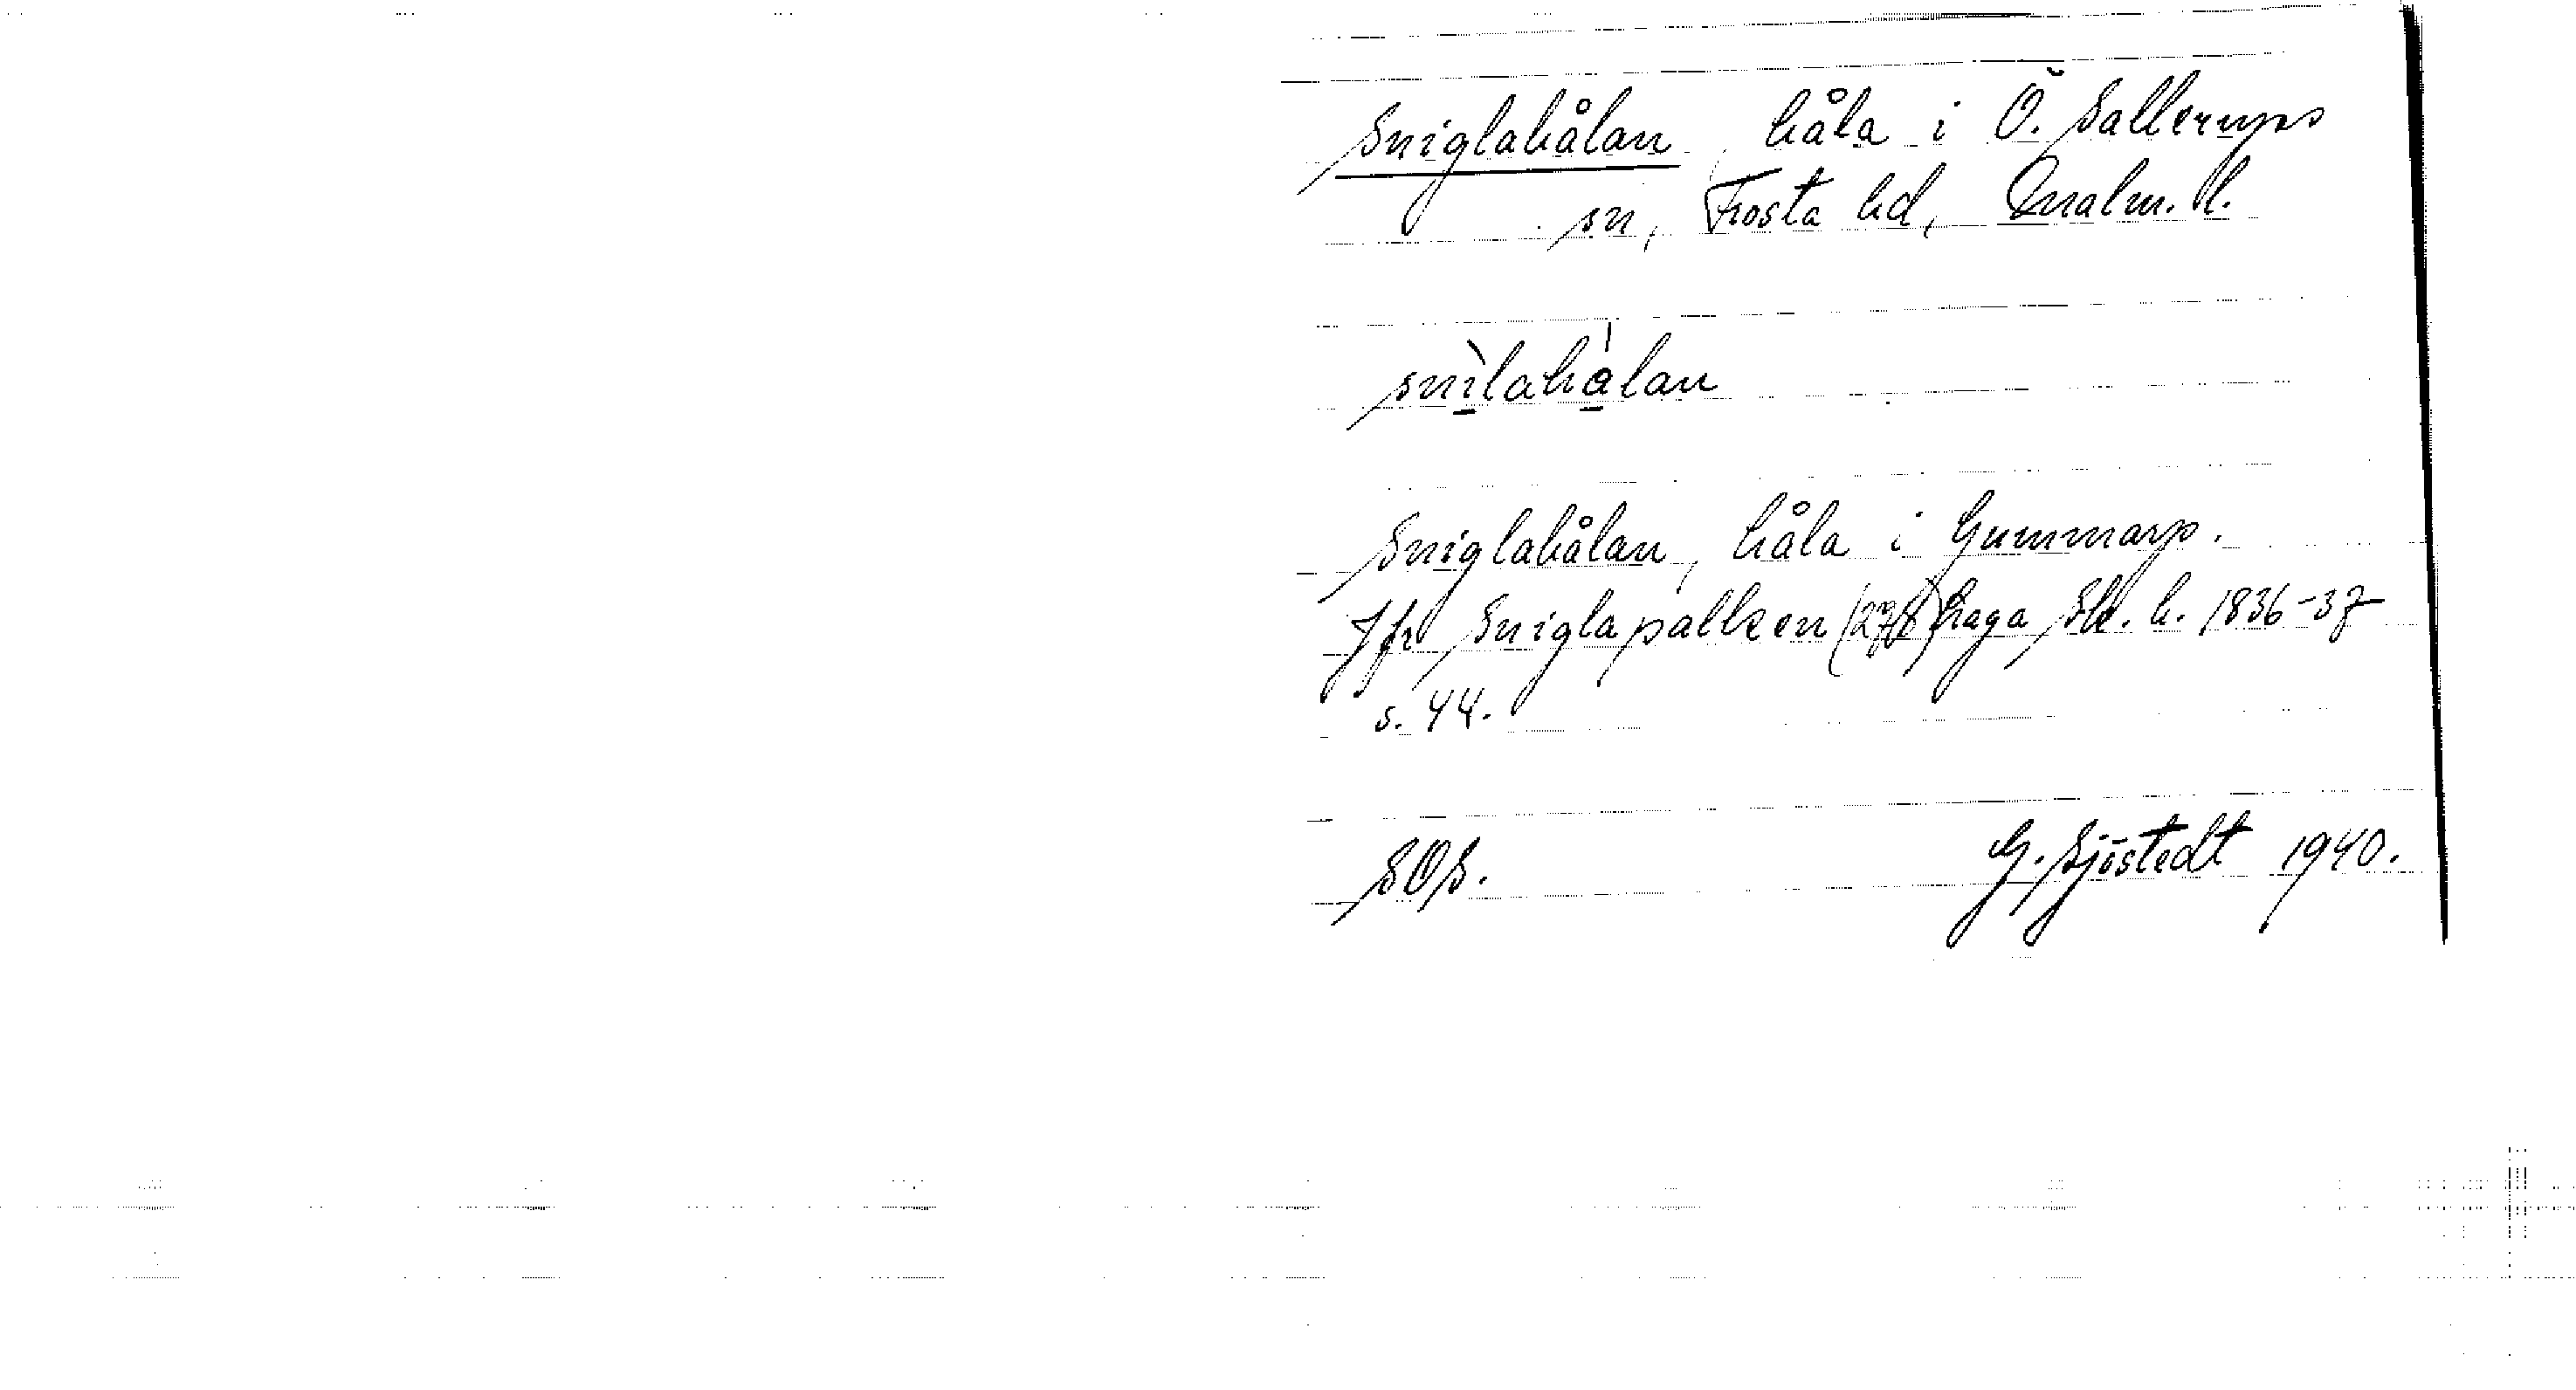 Sniglahålan, håla i Ö. Sallerups
sn, Frosta hd, Malm. l.
snìlahålan
Sniglahålan, håla i Gummarp.
Jfr Sniglapallen haga Sk. h. 1836-37
s. 44.
SOS.
G. Sjöstedt 1940.